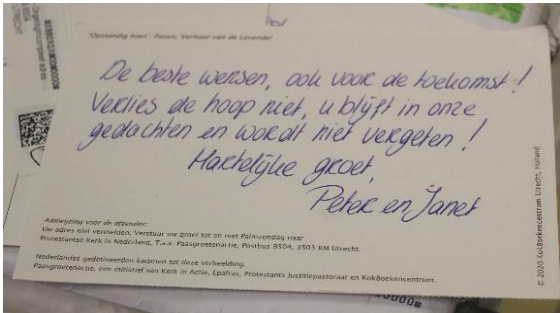 'Opstandig hout'. Pasen, Verhaal van de Levende!
De beste wensen, ook voor de toekomst!
Verlies de hoop niet, u blijft in onze
gedachten en wordt niet vergeten!
Hartelijke groet,
Peter en Janet
Aanwijzing voor de afzender:
Uw adres niet vermelden. Verstuur uw groet tot en met Palmzondag naar
Protestantse Kerk in Nederland, T.a.v. Paasgroetenactie, Postbus 8504, 3503 RM Utrecht.
Nederlandse gedetineerden kwamen tot deze verbeelding.
Paasgroetenactie, een initiatief van Kerk in Actie, Epafras, Protestants Justitiepastoraat en KokBoekencentrum.
© 2020 KokBoekencentrum Utrecht, Holland